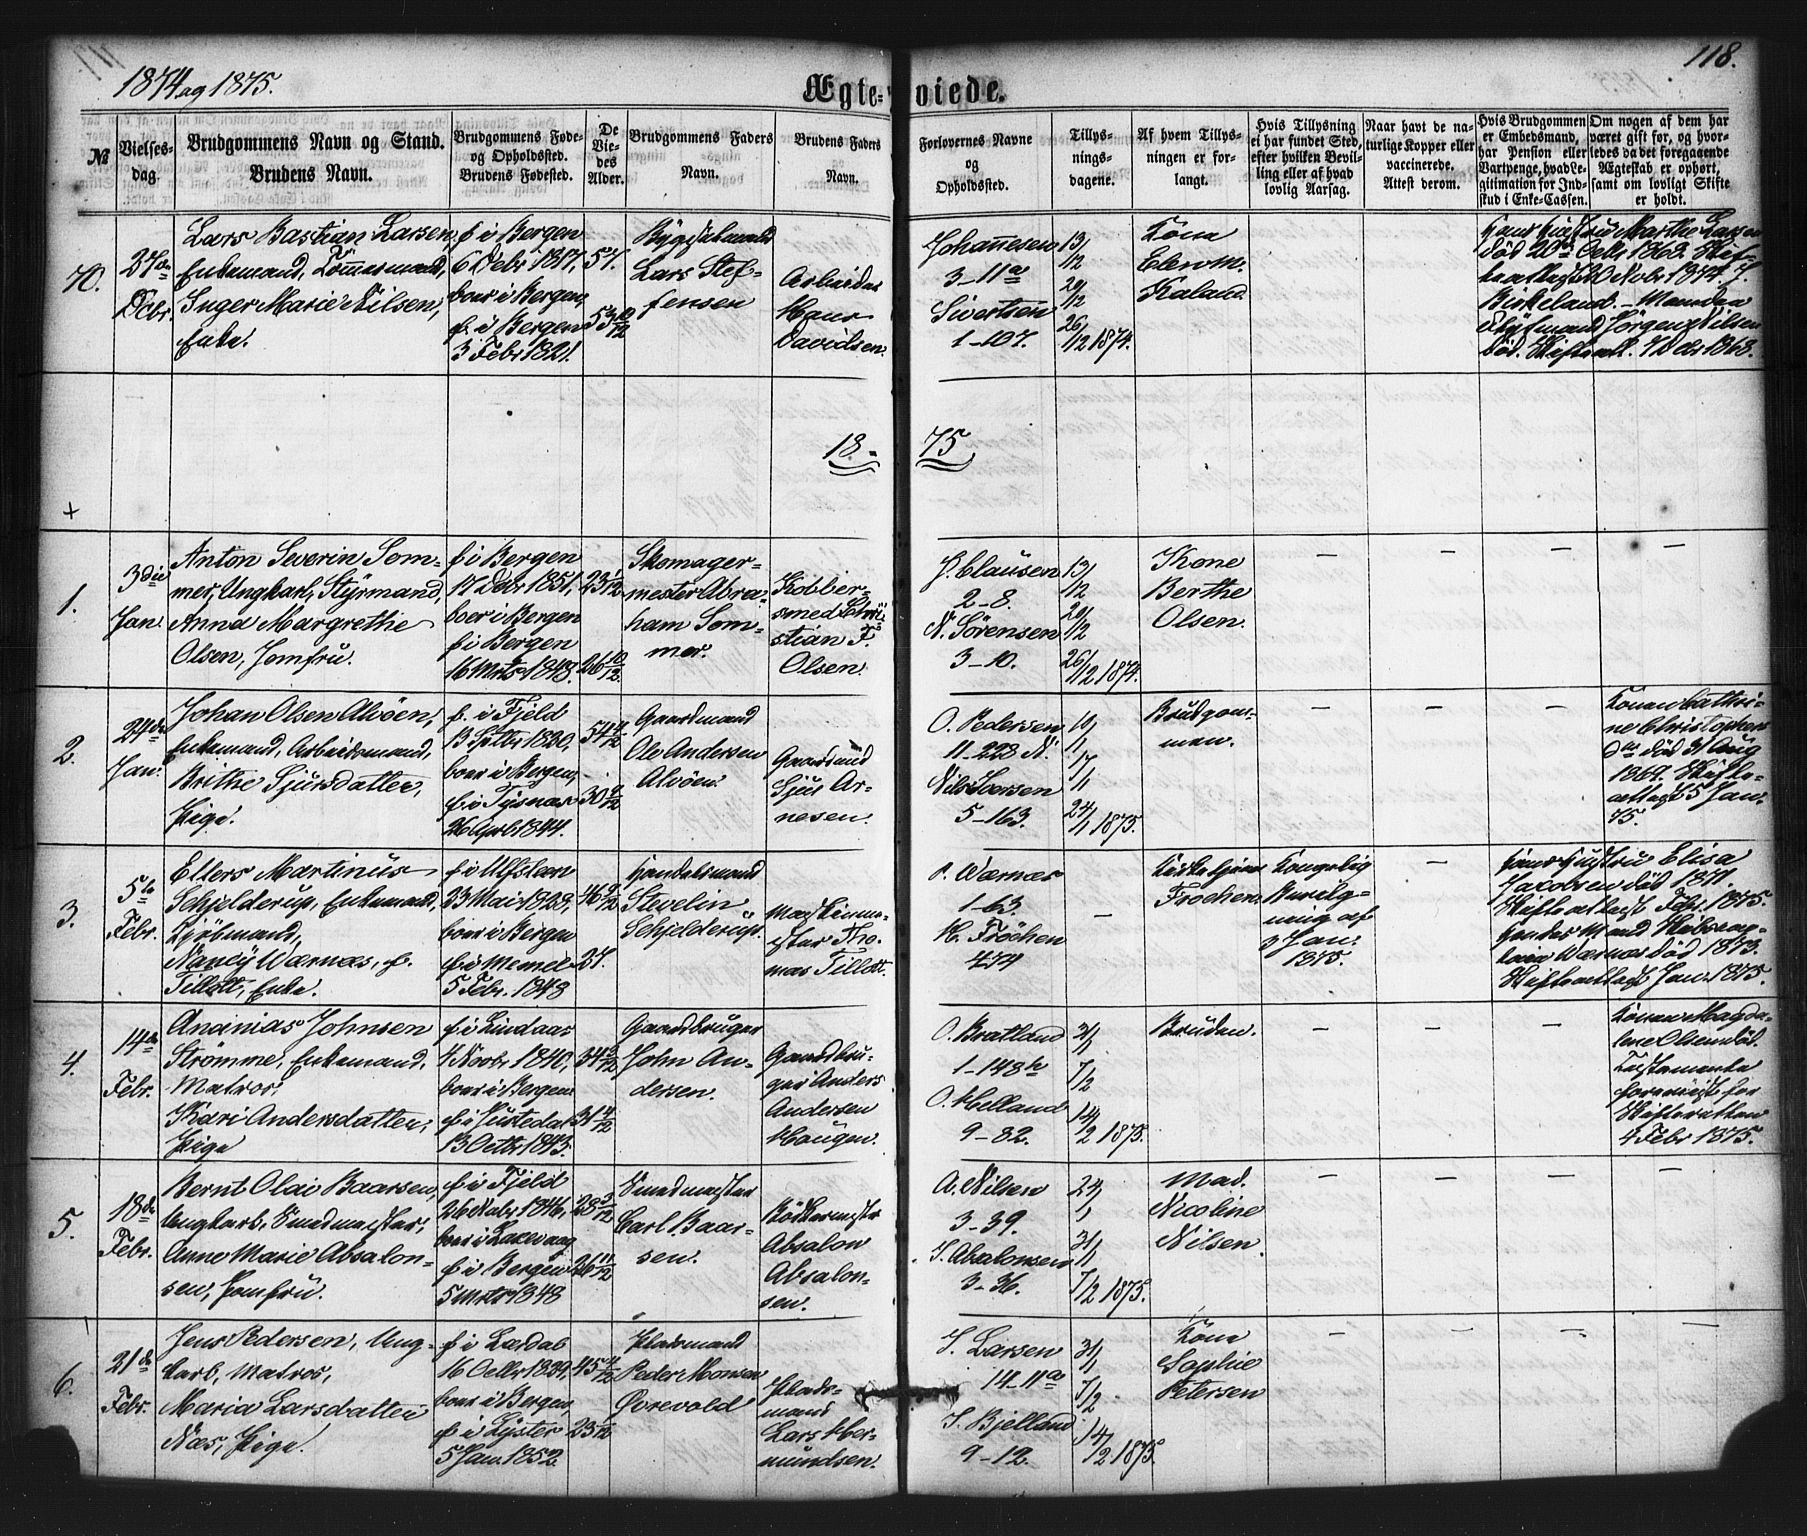 118.
1874 og 1875.
Ægte-viede.
№
Vielses-
dag.
Brudgommens Navn og Stand.
Brudens Navn.
Brudgommens Føde-
og Opholdssted.
Brudens Fødested.
De
Vie-
des
Alder.
Brudgommens Faders
Navn.
Brudens Faders
Navn.
Forlovernes Navne
og
Opholdssted.
Tillys-
nings-
dagene.
Af hvem Tillys-
ningen er for-
langt.
Hvis Tillysning
ei har fundet Sted,
efter hvilken Bevil-
ling eller af hvad
lovlig Aarsag.
Naar havt de na-
turlige Kopper eller
vaccinerede.
Attest derom.
Hvis Brudgommen
er Embedsmand,
har Pension eller
Vartpenge, hvad Le-
gitimation for Ind-
skud i Enke-Cassen.
Om nogen af dem har
været gift før, og hvor-
ledes da det foregaaende
Ægteskab er ophørt,
samt om lovligt Skifte
er holdt.
70.
27de
Decbr.
Lars Bastian Larsen
Enkemand, Tømmermand,
Inger Marie Nilsen,
Enke.
f. i Bergen
6 Debr 1817,
boer i Bergen,
f. i Bergen
3 Febr 1821.
57.
53 10/12
Lars Stef-
fensen
Arbeider
Hans
Davidsen.
Johannesen
3-11a
Sivertsen
1-107.
13/12
20/12
26/12 1874.
Kone
Elen M.
Kaland.
Hans Hustru Marthe Larsen
død 20de Octbr 1868. Skif-
teattest 20 Novbr 1874.
Birkeland. - Manden
Jørgen Nilsen
død. Skifteatt. 1868.
18-75
+
1.
3die
Jan.
Anton Severin Som-
mer, Ungkarl, Styrmand,
Anna Margrethe
Olsen, Jomfru.
f. i Bergen
17 Debr 1851,
boer i Bergen
f. i Bergen
16 Mrts 1848.
23 1/12
26 10/12
Skomager-
mester Abra-
ham Som-
mer.
Kobber-
smed Chri-
stian F.
Olsen.
J. Clausen
2-8.
N. Sørensen
3-10.
13/12
20/12
26/12 1874.
Kone
Berthe
Olsen.
2.
24de
Jan.
Johan Olsen Alvøen,
Enkemand, Arbeidsmand,
Brithe Sjursdatter,
Pige.
f. i Fjeld
13 Septbr 1820,
boer i Bergen,
f. i Tysnæs
26 April 1844.
54 4/12
30 9/12
Gaardmand
Ole Andersen
Alvøen.
Gaardmand
Sjur Ar-
nesen.
O. Pedersen
11-223 N.
Nils Iversen
5-163.
10/1
17/1
24/1 1875.
Brudgom-
men.
Konen Cathri-
ne Christophers-
datter død 31 Aug
1869. Skifte-
attest 5 Jan.
75.
3.
5te
Febr.
Ellers Martinus
Schjelderup, Enkemand,
Kjøbmand,
Nancy Wærnæs, f.
Tillott, Enke.
f. i Ulfsteen
23 Mai 1828,
boer i Bergen
f. i Memel
5 Febr. 1848
46 9/12
27.
Handelsmand
Stevelin
Schjelderup.
Maskinme-
ster Tho-
mas Tillott.
P. Wærnæs
1-63.
H. Frøchen
474
Kirketjener
Frochen.
Kongelig
Bevilg-
ning af
2 Jan.
1875.
Hans Hustru Elisa
Jacobsen død 1871.
Skifteattest Febr. 1875.
Hendes Mand Skibscap-
tain Wærnæs død 1873.
Skifteattest Jan. 1875.
4.
14de
Febr.
Ananias Johnsen
Strømme, Enkemand,
Matros,
Kari Andersdatter,
Pige
f. i Lindaas
4 Novbr 1840,
boer i Bergen
f. i Justedal
13 Octbr 1843.
34 3/12
31 4/12
Gaardbruger
John An-
dersen.
Gaardbru-
ger Anders
Andersen
Haugen.
O. Bratland
1-148b
O. Helland
9-82.
31/1
7/2
14/2 1875.
Bruden.
Konen Magda-
lene Olsen død.
Testamente
forevist for
Skifteretten
4 Febr 1875.
5.
18de
Febr.
Bernt Olai Baarsen,
Ungkarl, Smedmester,
Anne Marie Absalon-
sen, Jomfru.
f. i Fjeld
26 Novbr 1846,
boer i Laxevaag
f. i Bergen
5 Mrts 1848
28 3/12
26 11/12
Smedmester
Carl Baar-
sen.
Bødkermester
Absalon
Absalon-
sen.
A. Nilsen
3-39.
I. Absalonsen
3-36.
24/1
31/1
7/2 1875.
Mad.
Nicoline
Nilsen.
6.
21de
Febr.
Jens Pedersen, Ung-
karl, Matros,
Maria Larsdatter
Næs, Pige.
f. i Lærdal
16 Octbr 1839,
boer i Bergen,
f. i Lyster
5 Jan. 1852.
45 4/12
23 1/12
Pladsmand
Peder Monsen
Øvrevold
Plads-
mand
Lars Her-
mundsen.
S. Larsen
14-11a
S. Bjelland
9-12.
31/1
7/2
14/2 1875.
Kone
Sophie
Petersen